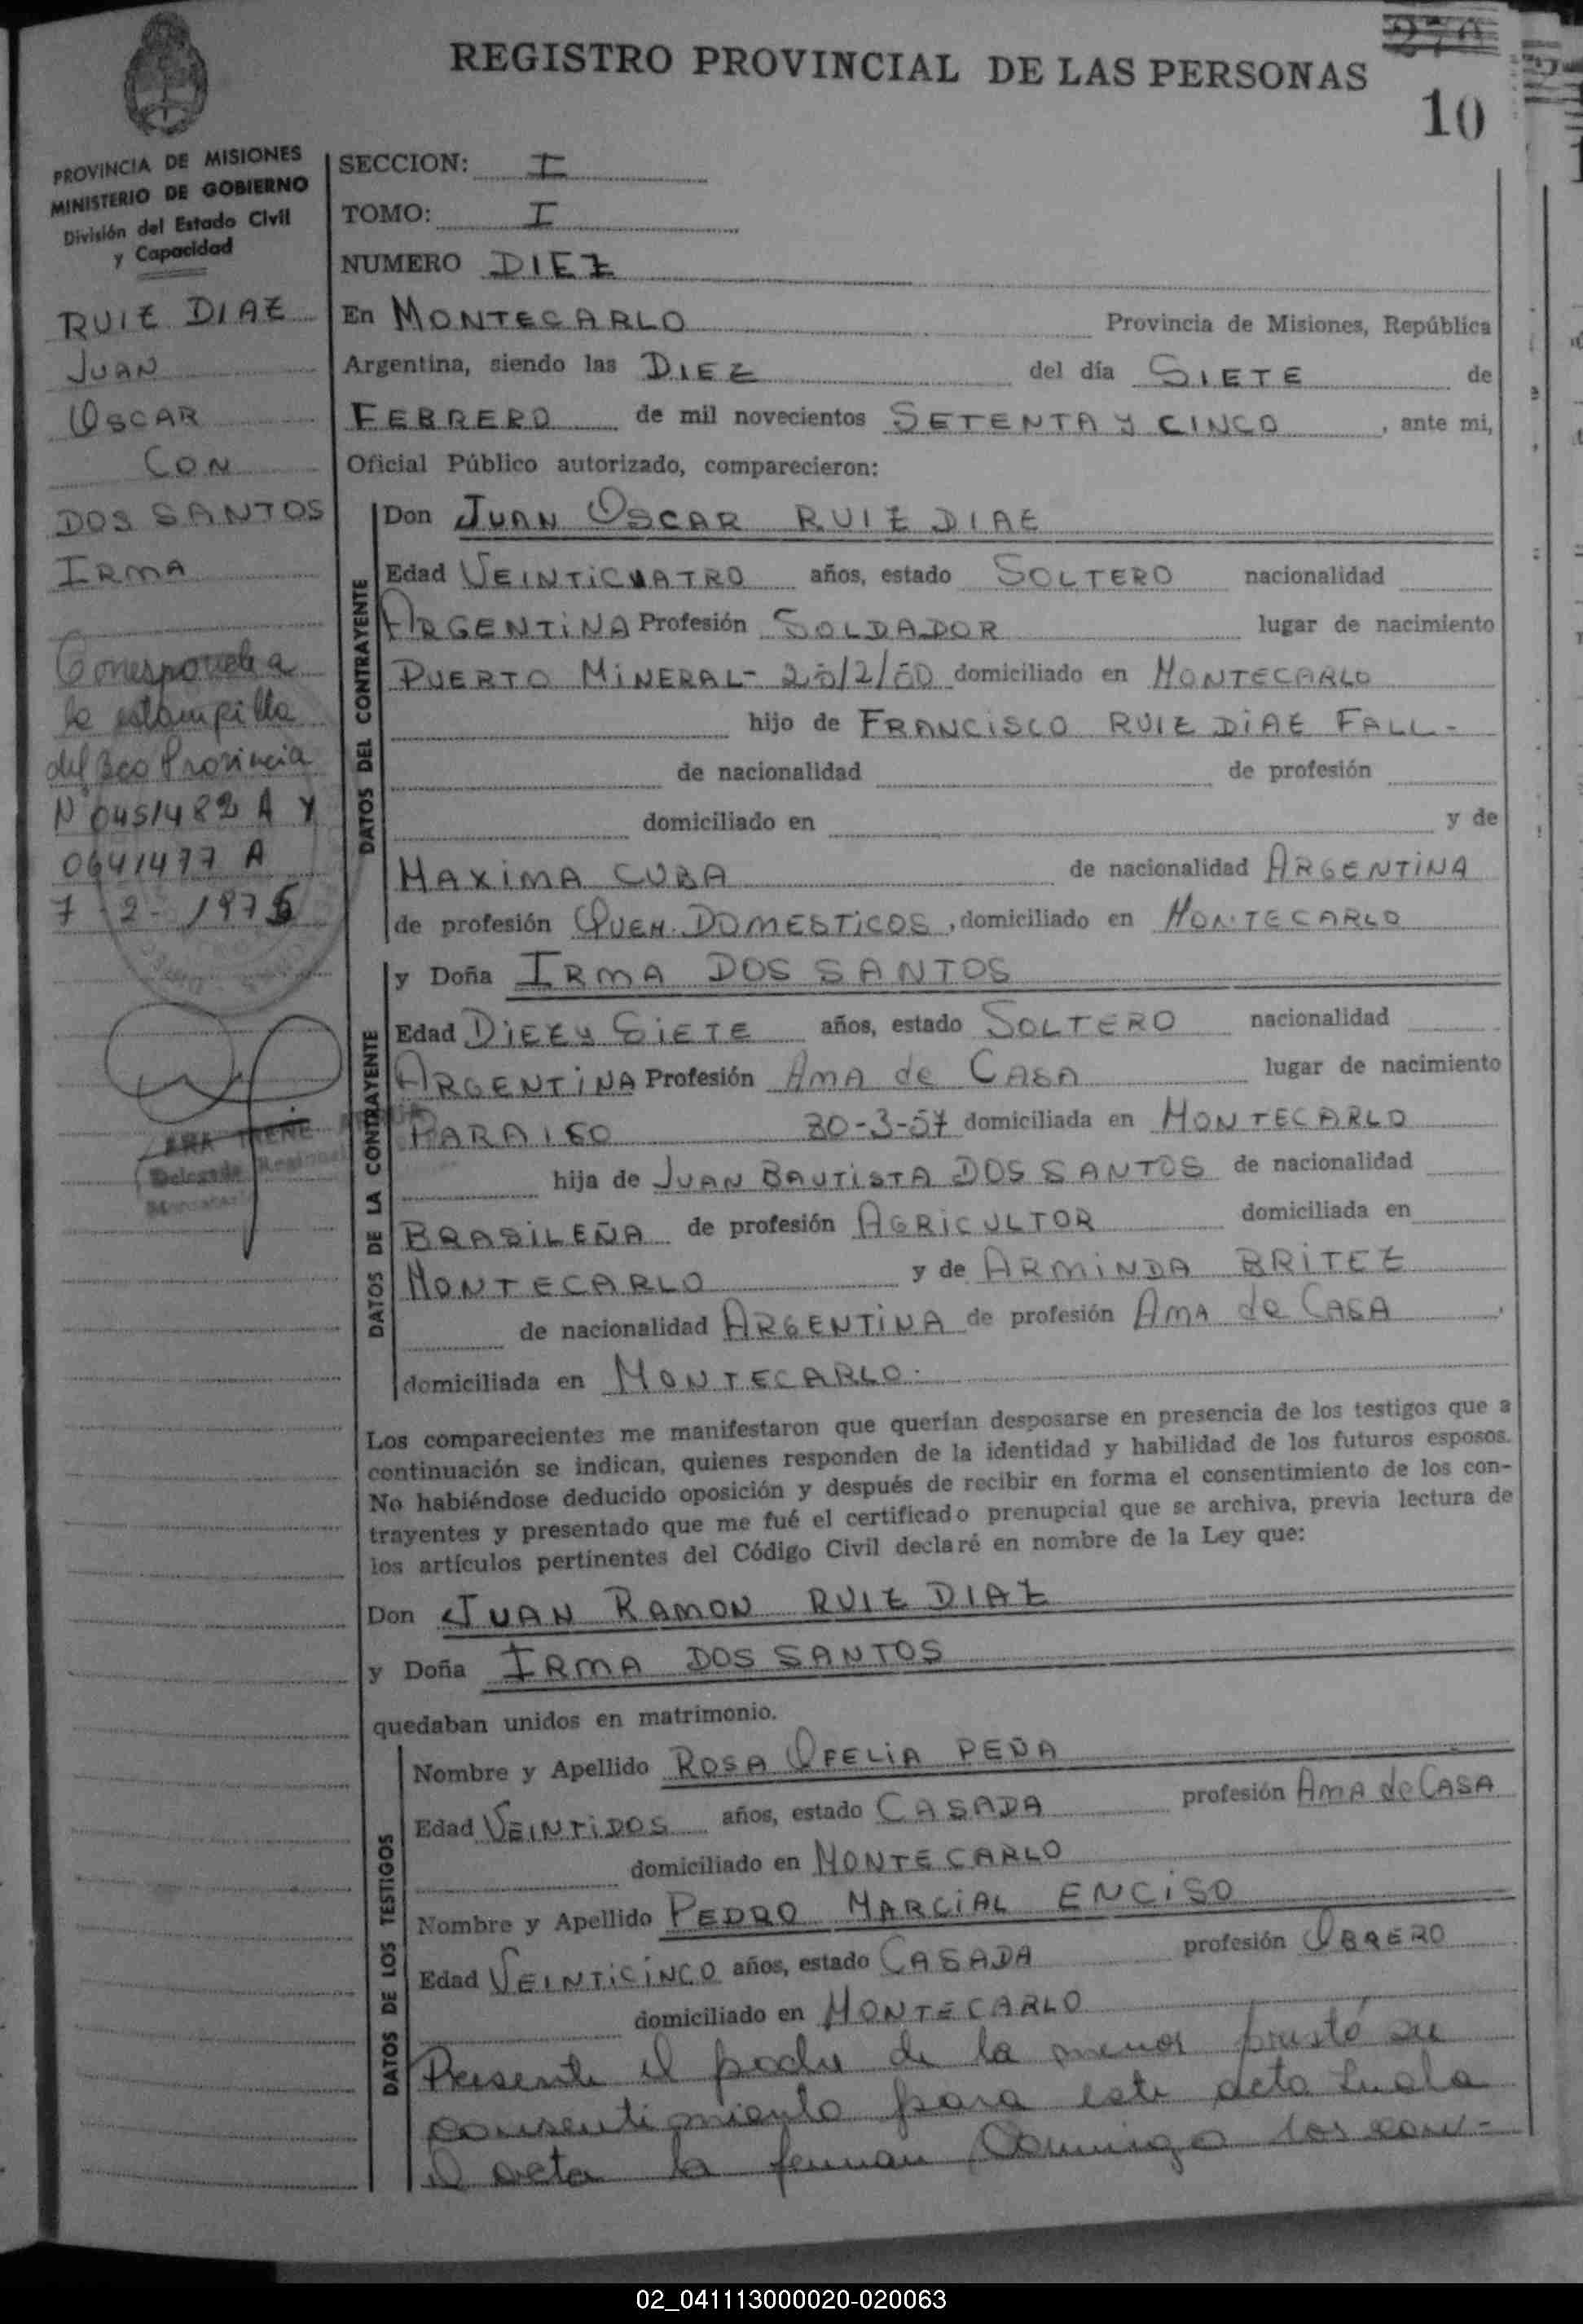 REGISTRO PROVINCIAL DE LAS PERSONAS
270
10
PROVINCIA DE MISIONES
MINISTERIO DE GOBIERNO
División del Estado Civil
y Capacidad
RUIZ DIAZ
JUAN
OSCAR
CON
DOS SANTOS
IRMA
Corresponde a
la estampilla
del Bco Provincia
N° 0451482 A Y
0641477 A
7-2-1975
Delegada Regional
SECCION: I
TOMO: I
NUMERO DIEZ
En MONTECARLO Provincia de Misiones, República
Argentina, siendo las DIEZ del día SIETE de
FEBRERO de mil novecientos SETENTA y CINCO, ante mi,
Oficial Público autorizado, comparecieron:
DATOS DEL CONTRAYENTE
Don JUAN OSCAR RUIZ DIAZ
Edad VEINTICUATRO años, estado SOLTERO nacionalidad
ARGENTINA Profesión SOLDADOR lugar de nacimiento
PUERTO MINERAL- domiciliado en MONTECARLO
hijo de FRANCISCO RUIZ DIAZ FALL-
de nacionalidad de profesión
domiciliado en y de
MAXIMA CUBA de nacionalidad ARGENTINA
de profesión QUEH. DOMESTICOS, domiciliado en MONTECARLO
DATOS DE LA CONTRAYENTE
y Doña IRMA DOS SANTOS
Edad DIEZ y SIETE años, estado SOLTERO nacionalidad
ARGENTINA Profesión AMA de CASA lugar de nacimiento
PARAISO 30-3-57 domiciliada en MONTECARLO
hija de JUAN BAUTISTA DOS SANTOS de nacionalidad
BRASILEÑA de profesión AGRICULTOR domiciliada en
MONTECARLO y de ARMINDA BRITEZ
de nacionalidad ARGENTINA de profesión AMA de CASA,
domiciliada en MONTECARLO.
Los comparecientes me manifestaron que querían desposarse en presencia de los testigos que a
continuación se indican, quienes responden de la identidad y habilidad de los futuros esposos.
No habiéndose deducido oposición y después de recibir en forma el consentimiento de los con-
trayentes y presentado que me fué el certificado prenupcial que se archiva, previa lectura de
los artículos pertinentes del Código Civil declaré en nombre de la Ley que:
Don JUAN RAMON RUIZ DIAZ
y Doña IRMA DOS SANTOS
quedaban unidos en matrimonio.
DATOS DE LOS TESTIGOS
Nombre y Apellido ROSA OFELIA PEÑA
Edad VEINTIDOS años, estado CASADA profesión AMA de CASA
domiciliado en MONTECARLO
Nombre y Apellido PEDRO MARCIAL ENCISO
Edad VEINTICINCO años, estado CASADA profesión OBRERO
domiciliado en MONTECARLO
Presente el padre de la menor prestó su
consentimiento para este acto Leida
el acta la firman Conmigo los con-
02_041113000020-020063